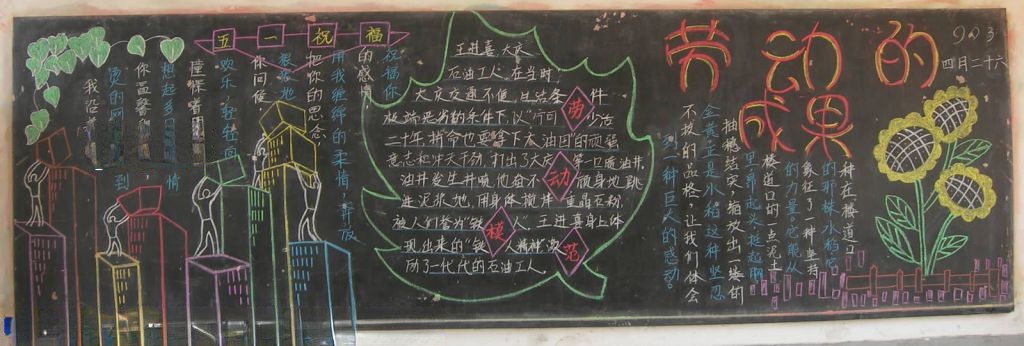 五一祝福
祝福你
的感情
用我缠绵的柔情 释放
把你的思念
浓浓地
你问候
欢乐 轻轻向
憧憬着
想起多
你温馨
烫的网
我沿
到,情
王进喜 大庆
石油工人,在当时,
大庆交通不便,生活条件
极端艰苦的条件下,以“宁可少活
二十年,拼命也要拿下大油田的顽强
意志和冲天干劲,打出了大庆第一口喷油井,
油井发生井喷他奋不顾身地跳
进泥浆池,用身体搅拌重晶石粉,
被人们誉为“铁人”。王进喜身上体
现出来的“铁人精神”激
励了一代代的石油工人。
劳
动
模
范
劳动的
成果
903
四月二十六
种在楼道口
的那株水稻它
象征了一种坚韧
的力量它能从
楼道口的一点泥土
里昂起头,挺起胸
抽穗结实,释放出一缕的
金黄,正是小稻这种坚忍
不拔的品格,让我们体会
到一种巨大的感动。